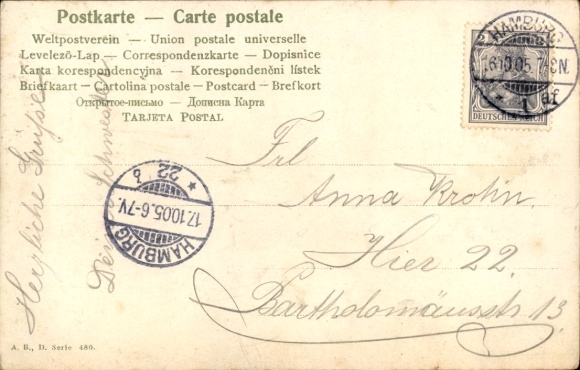 Postkarte — Carte postale
Weltpostverein — Union postale universelle
Levelező-Lap — Correspondenzkarte — Dopisnice
Karta korespondencyina — Korespondenční lístek
Briefkaart — Cartolina postale — Postcard — Brefkort
Открытое-письмо — Дописна Карта
TARJETA POSTAL
HAMBURG
16.10.05.
1 af
2
DEUTSCHES REICH
HAMBURG
17.10.05.6-7V.
* 22 b
Herzliche Grüsse
Deine Schwester
Frl
Anna Krohn.
Hier 22.
Bartholomäusstr 13
A. B., D. Serie 480.